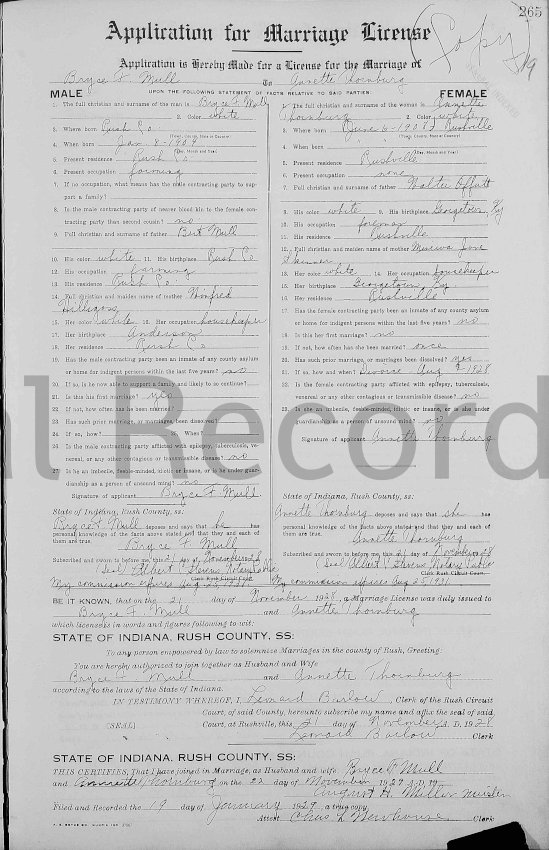 265
Application for Marriage License
(Copy)
Application is Hereby Made for a License for the Marriage of
Bryce F. Mull To Annette Thornburg
MALE UPON THE FOLLOWING STATEMENT OF FACTS RELATIVE TO SAID PARTIES: FEMALE
1. The full christian and surname of the man is Bryce F Mull
2. Color white
3. Where born Rush Co.
(Town, County, State or Country)
4. When born Jan. 8-1909
(Day, Month and Year)
5. Present residence Rush Co
6. Present occupation farming
7. If no occupation, what means has the male contracting party to sup-
port a family?
8. Is the male contracting party of nearer blood kin to the female con-
tracting party than second cousin? no
9. Full christian and surname of father Bert Mull
10. His color white 11. His birthplace Rush Co
12. His occupation farming
13. His residence Rush Co
14. Full christian and maiden name of mother Winifred
Hilligoss
15. Her color white 16. Her occupation housekeeper
17. Her birthplace Anderson
18. Her residence Rush Co
19. Has the male contracting party been an inmate of any county asylum
or home for indigent persons within the last five years? no
20. If so, is he now able to support a family and likely to so continue?
21. Is this his first marriage? yes
22. If not, how often has he been married?
23. Has such prior marriage, or marriages, been dissolved?
24. If so, how? When?
26. Is the male contracting party afflicted with epilepsy, tuberculosis, ve-
nereal, or any other contagious or transmissible disease? no
27. Is he an imbecile, feeble-minded, idiotic or insane, or is he under guar-
dianship as a person of unsound mind? no
Signature of applicant Bryce F Mull
State of Indiana, Rush County, ss:
Bryce F Mull deposes and says that he has
personal knowledge of the facts above stated and that they and each of
them are true.
Bryce F Mull
Subscribed and sworn to before me this 21 day of November 28
(Seal) Albert Stevens Notary Public
Clerk Rush Circuit Court
My commission expires Aug 25, 1931
1. The full christian and surname of the woman is Annette
Thornburg 2. Color white
3. Where born June 6-1908 Rushville
(Town, County, State or Country)
4. When born
(Day, Month and Year)
5. Present residence Rushville
6. Present occupation none
7. Full christian and surname of father Walter Offutt
8. His color white 9. His birthplace Georgetown, Ky
10. His occupation foreman
11. His residence Rushville
12. Full christian and maiden name of mother Jane
Skinner
13. Her color white 14. Her occupation housekeeper
15. Her birthplace Georgetown, Ky.
16. Her residence Rushville
17. Has the female contracting party been an inmate of any county asylum
or home for indigent persons within the last five years? no
18. Is this her first marriage? no
19. If not, how often has she been married? once
20. Has such prior marriage, or marriages been dissolved? yes
21. If so, how and when? Divorce Aug 1928
22. Is the female contracting party afflicted with epilepsy, tuberculosis,
venereal or any other contagious or transmissible disease? no
23. Is she an imbecile, feeble-minded, idiotic or insane, or is she under
guardianship as a person of unsound mind? no
Signature of applicant Annette Thornburg
State of Indiana, Rush County, ss:
Annette Thornburg deposes and says that she has
personal knowledge of the facts above stated and that they and each of
them are true.
Annette Thornburg
Subscribed and sworn to before me this 21 day of November 28
(Seal) Albert Stevens Notary Public
Clerk Rush Circuit Court
My commission expires Aug 25, 1931
BE IT KNOWN, that on the 21 day of November 1928, a Marriage License was duly issued to
Bryce F Mull and Annette Thornburg
which license is in words and figures following to wit:
STATE OF INDIANA, RUSH COUNTY, SS:
To any person empowered by law to solemnize Marriages in the county of Rush, Greeting:
You are hereby authorized to join together as Husband and Wife
Bryce F Mull and Annette Thornburg
according to the laws of the State of Indiana.
IN TESTIMONY WHEREOF, I, Leonard Barlow, Clerk of the Rush Circuit
Court, of said County, hereunto subscribe my name and affix the seal of said
(SEAL) Court, at Rushville, this 21 day of November A. D. 1928
Leonard Barlow Clerk
STATE OF INDIANA, RUSH COUNTY, SS:
THIS CERTIFIES, That I have joined in Marriage, as Husband and wife Bryce F Mull
and Annette Thornburg on the 22 day of November 1927 A. D. 19
August H. Muller Minister
Filed and Recorded the 19 day of January 1929 a true copy
Attest Chas L Newhouse Clerk
l Record